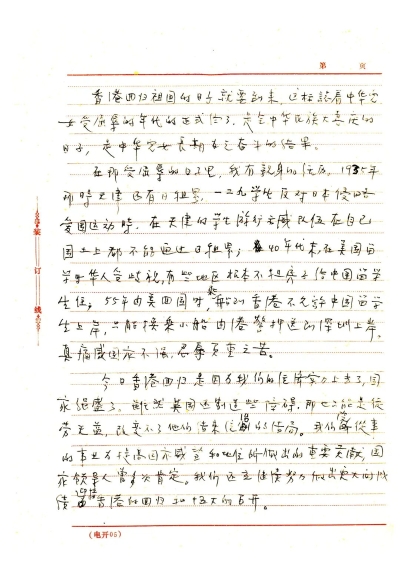 第 页
香港回归祖国的日子就要到来，这标志着中华儿
女受屈辱的年代的正式结了，是全中华民族大喜庆的
日子，是中华儿女长期奋斗的结果。
在那受屈辱的日子里，我有亲身的经历，1935年
那时天津还有日租界，一二九学生反对日本侵略
爱国运动时，在天津的学生游行示威队伍在自己
国土上都不能通过日租界；40年代末，在美国留
学华人受歧视，有些地区根本不租房子给中国留学
生住；55年由美回国时，船到香港不允许中国留学
生上岸，只能换乘小船由港警押送到深圳上岸，
真痛感国家不强，忍辱负重之苦。
今日香港回归是因为我们的经济实力上去了，国
家强盛了。虽然英国还制造些障碍，那也只能是徒
劳无益，改变不了他们结束的结局。我们院从事
的事业为提高国家威望和地位所做出的重要贡献，国
家领导人曾多次肯定。我们还立继续努力做出更大的成
绩迎接香港和回归和十五大的召开。
装订线
（电开05）